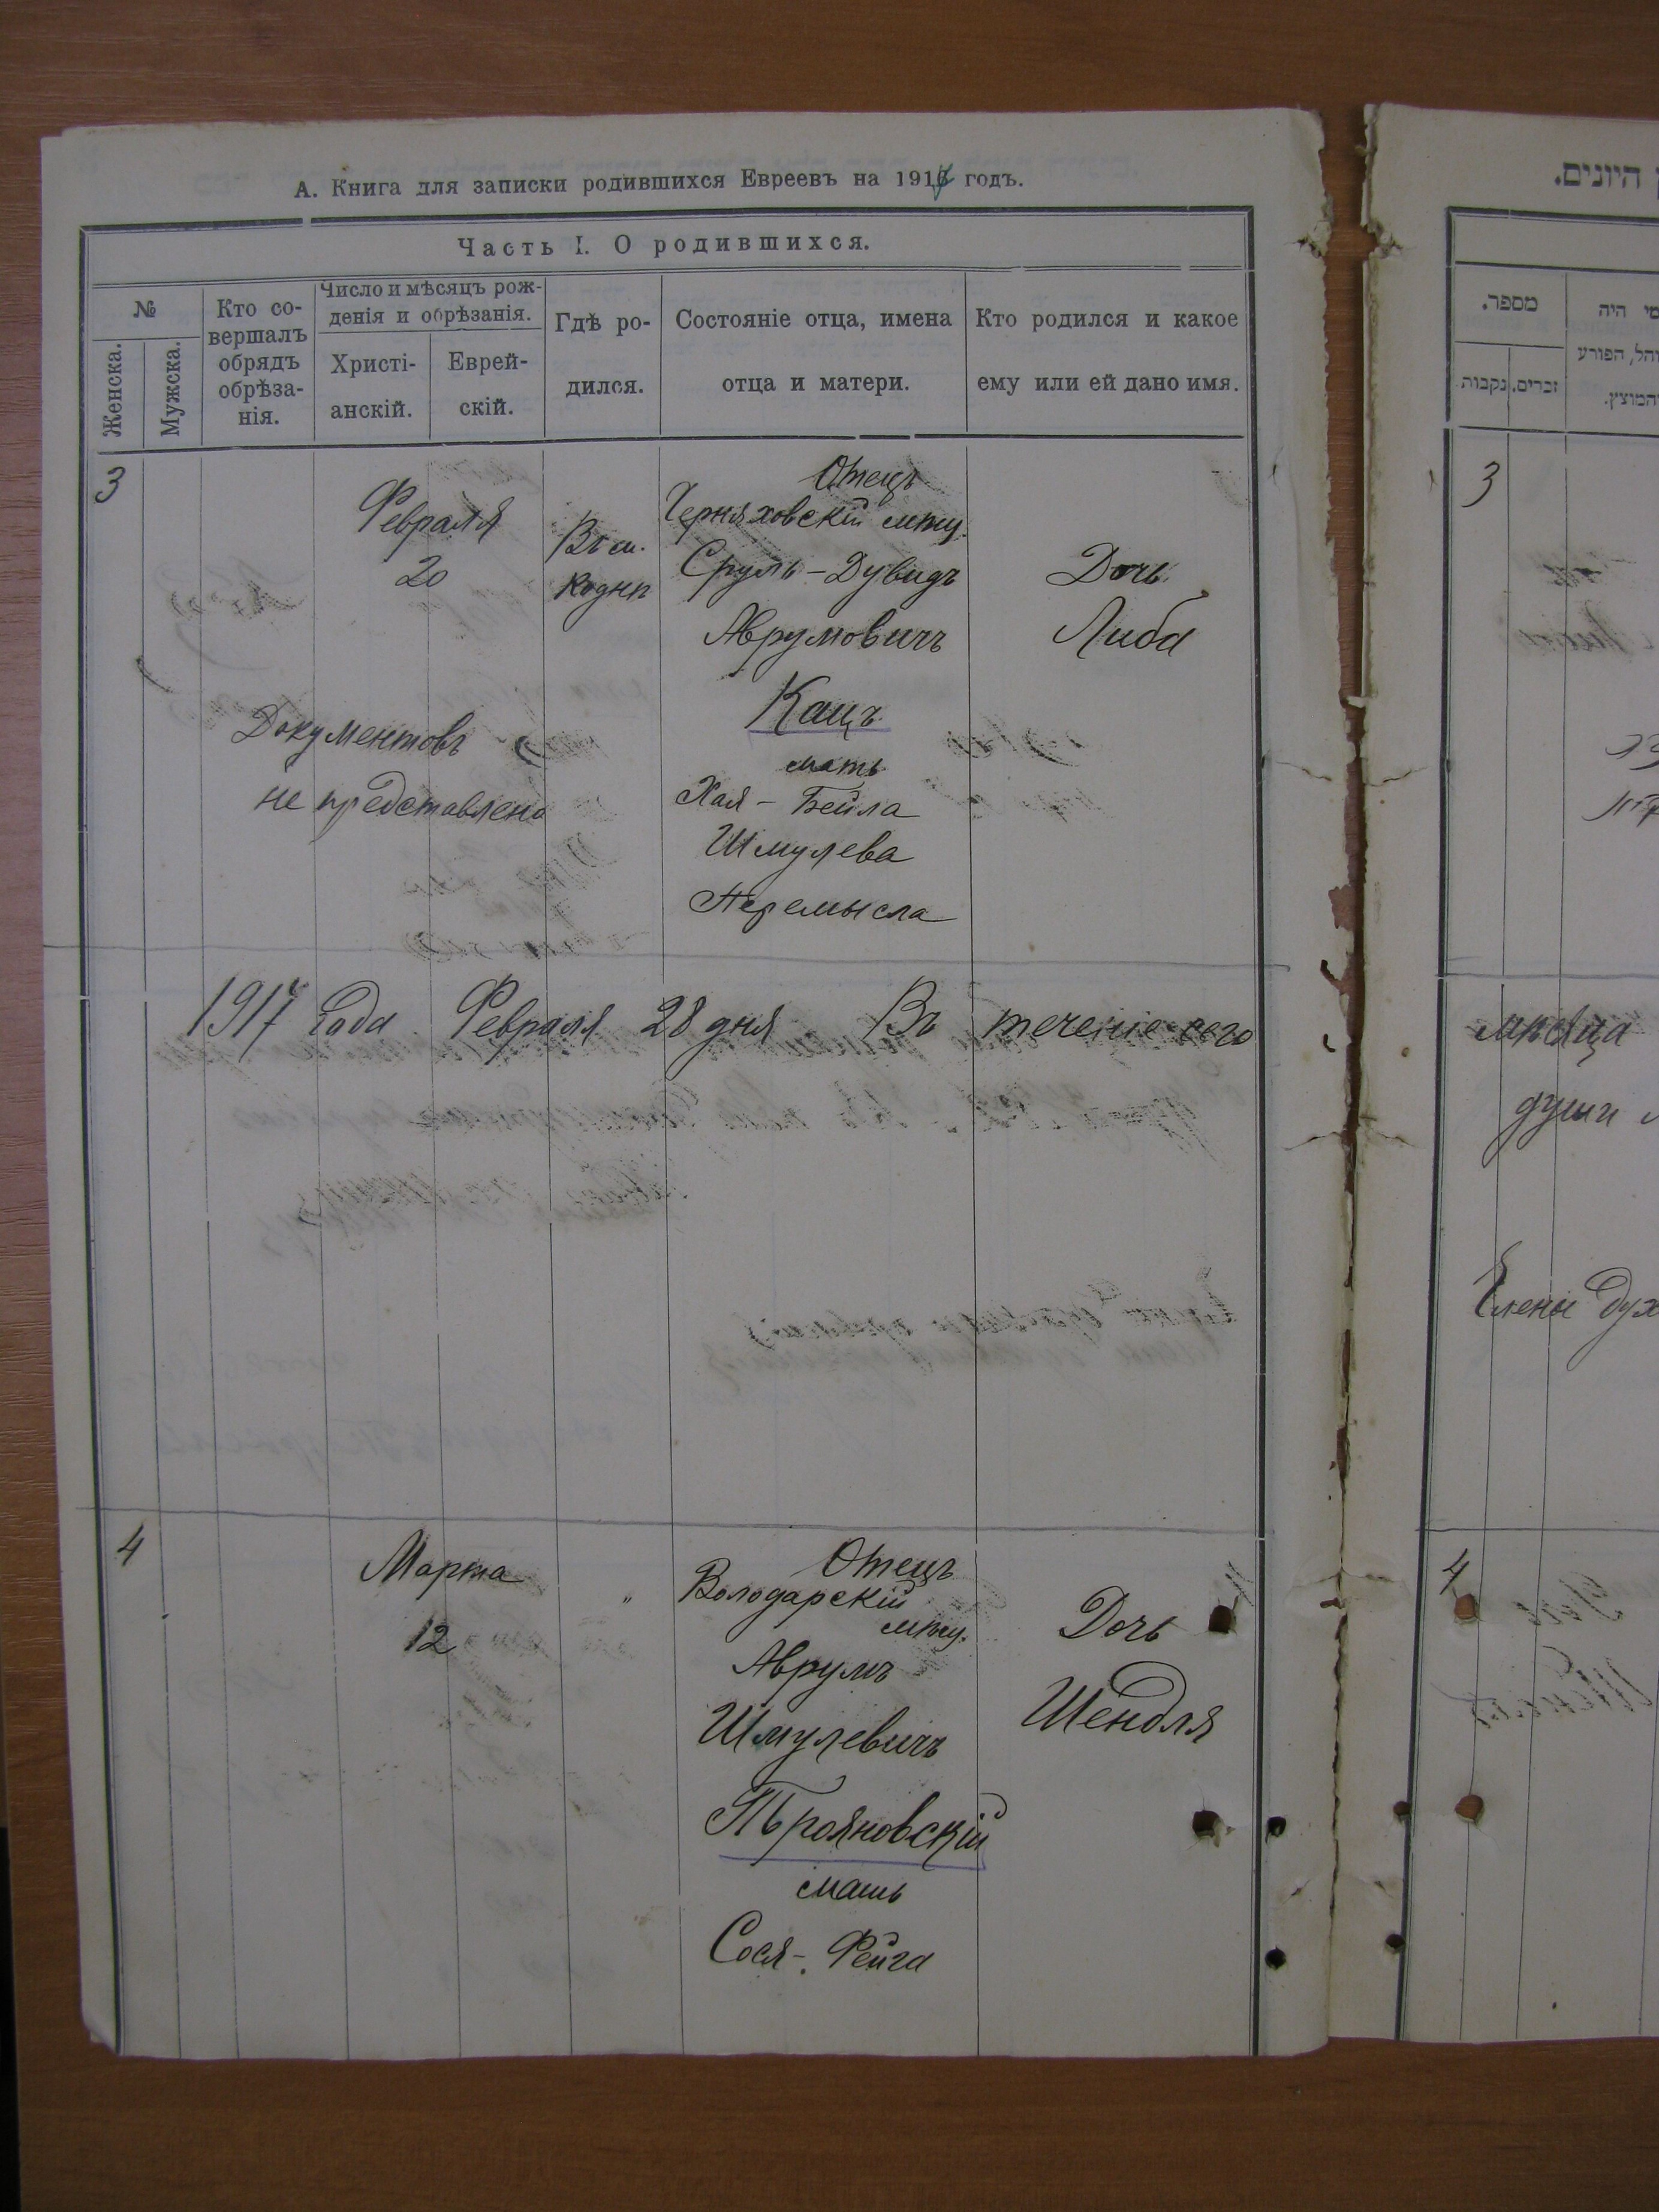 А. Книга для записки родившихся Евреевъ на 1917 годъ.
Часть I. О родившихся.
№
Женска.
Мужска.
Кто со-
вершалъ
обрядъ
обрѣза-
нія.
Число и мѣсяцъ рож-
денія и обрѣзанія.
Христі-
анскій.
Еврей-
скій.
Гдѣ ро-
дился.
Состояніе отца, имена
отца и матери.
Кто родился и какое
ему или ей дано имя.
3
Февраля
20
Въ м.
Отецъ
Черняховскій мѣщ.
Сруль-Дувидъ
Аврумовичъ
Кацъ
мать
Хая-Бейла
Шмулева
Перемысла
Дочь
Либа
Документовъ
не представлено
1917 года Февраля 28 дня Въ теченіе сего
4
Марта
12
"
Отецъ
Володарскій
мѣщ.
Аврумъ
Шмулевичъ
мать
Сося-Фейга
Дочь
Шендля
היונים.
מספר.
זכרים.
נקבות
מי היה
המוהל, הפורע
והמוצץ.
3
мѣсяца
души
Елены
4